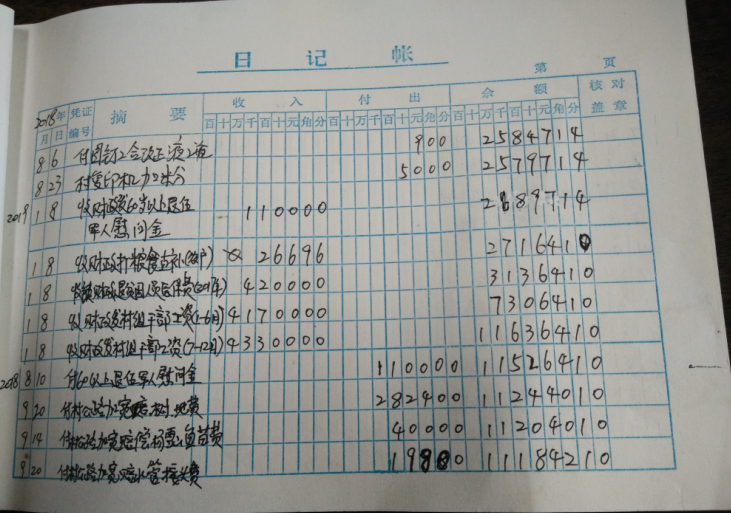 日 记 帐
第 页
2018年 凭证 摘 要 收 入 付 出 金 额 核 对
月 日 编号 百十万千百十元角分 百十万千百十元角分 百十万千百十元角分 盖 章
8 6 付图钉2合改正液2 900 2584714
8 23 付复印机加粉 5000 2579714
2019 1 8 收财政60岁以上退伍 110000 2689714
军人慰问金
1 8 收财政村粮食直补 26696 2716410
1 8 收财政 420000 3136410
1 8 收财政发村组干部工资(1-6月) 4170000 7306410
1 8 收财政发村组干部工资(7-12月) 4330000 11636410
2018 8 10 付60以上退伍军人慰问金 110000 11526410
9 20 付村公路加宽赔树、地费 282400 11244010
9 14 付公路加宽赔偿 鱼苗费 40000 11204010
9 20 付公路加宽赔水管接头费 19800 11184210